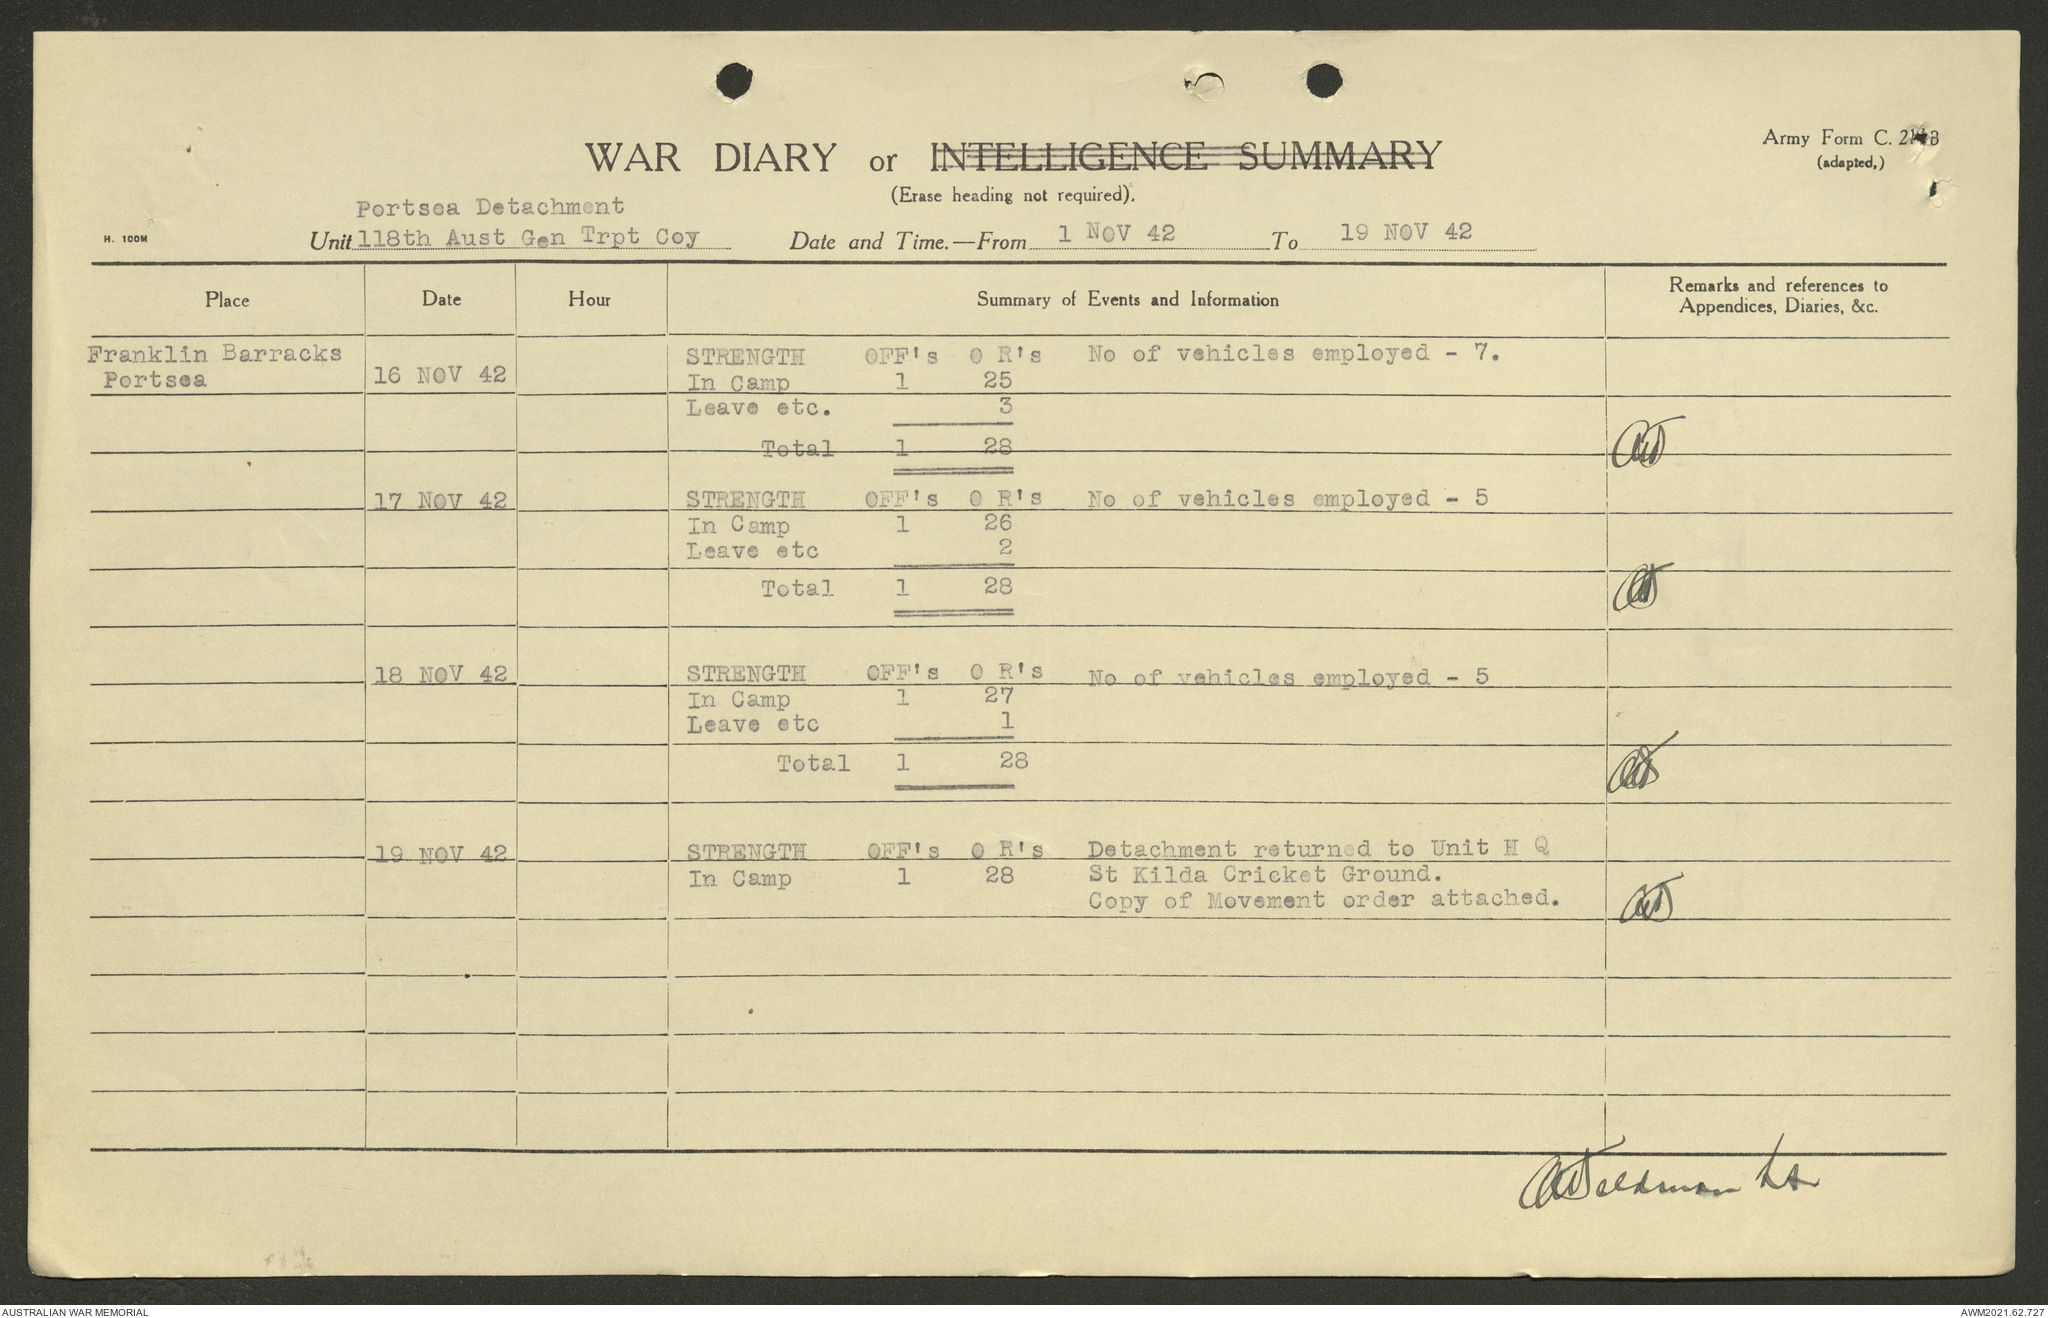 Army Form C. 2118
(adapted,)
WAR DIARY or INTELLIGENCE SUMMARY
(Erase heading not required).
Portsea Detachment
H. 100M
Unit 118th Aust Gen Trpt Coy Date and Time.—From 1 NOV 42 To 19 NOV 42
Place Date Hour Summary of Events and Information Remarks and references to
Appendices, Diaries, &c.
Franklin Barracks
Portsea
16 NOV 42
STRENGTH OFF's O R's No of vehicles employed - 7.
In Camp 1 25
Leave etc. 3
Total 1 28
17 NOV 42 STRENGTH OFF's O R's No of vehicles employed - 5
In Camp 1 26
Leave etc 2
Total 1 28
18 NOV 42 STRENGTH OFF's O R's No of vehicles employed - 5
In Camp 1 27
Leave etc 1
Total 1 28
19 NOV 42 STRENGTH OFF's O R's Detachment returned to Unit H Q
In Camp 1 28 St Kilda Cricket Ground.
Copy of Movement order attached.
AUSTRALIAN WAR MEMORIAL
AWM2021.62.727